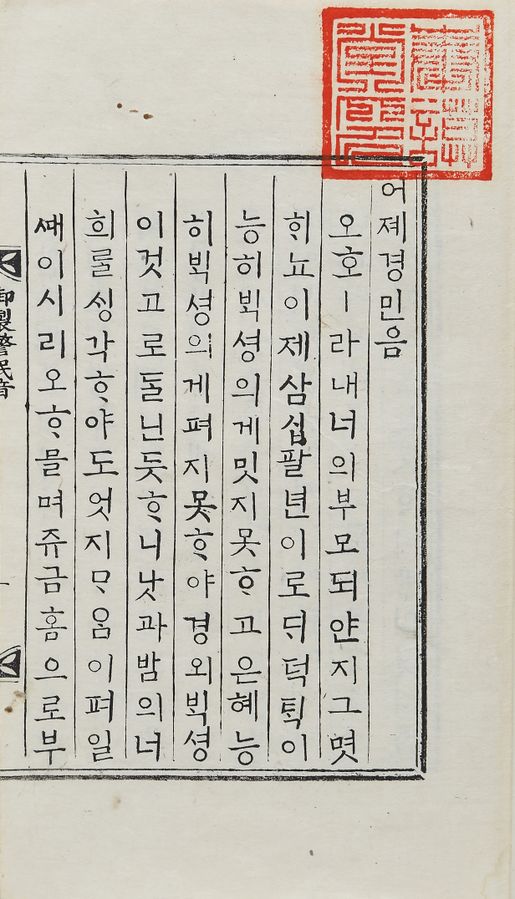 어졔경민음
오호ㅣ라내너의부모되얀지그몃
ᄒᆡ뇨이제삼십팔년이로ᄃᆡ덕ᄐᆡᆨ이
능히ᄇᆡᆨ셩의게밋지못ᄒᆞ고은혜능
히ᄇᆡᆨ셩의게펴지못ᄒᆞ야경외ᄇᆡᆨ셩
이것고로돌닌듯ᄒᆞ니낫과밤의너
희를ᄉᆡᆼ각ᄒᆞ야도엇지ᄆᆞᄋᆞᆷ이펴일
ᄯᅢ이시리오ᄒᆞ믈며쥬금홈으로부
御製警民音